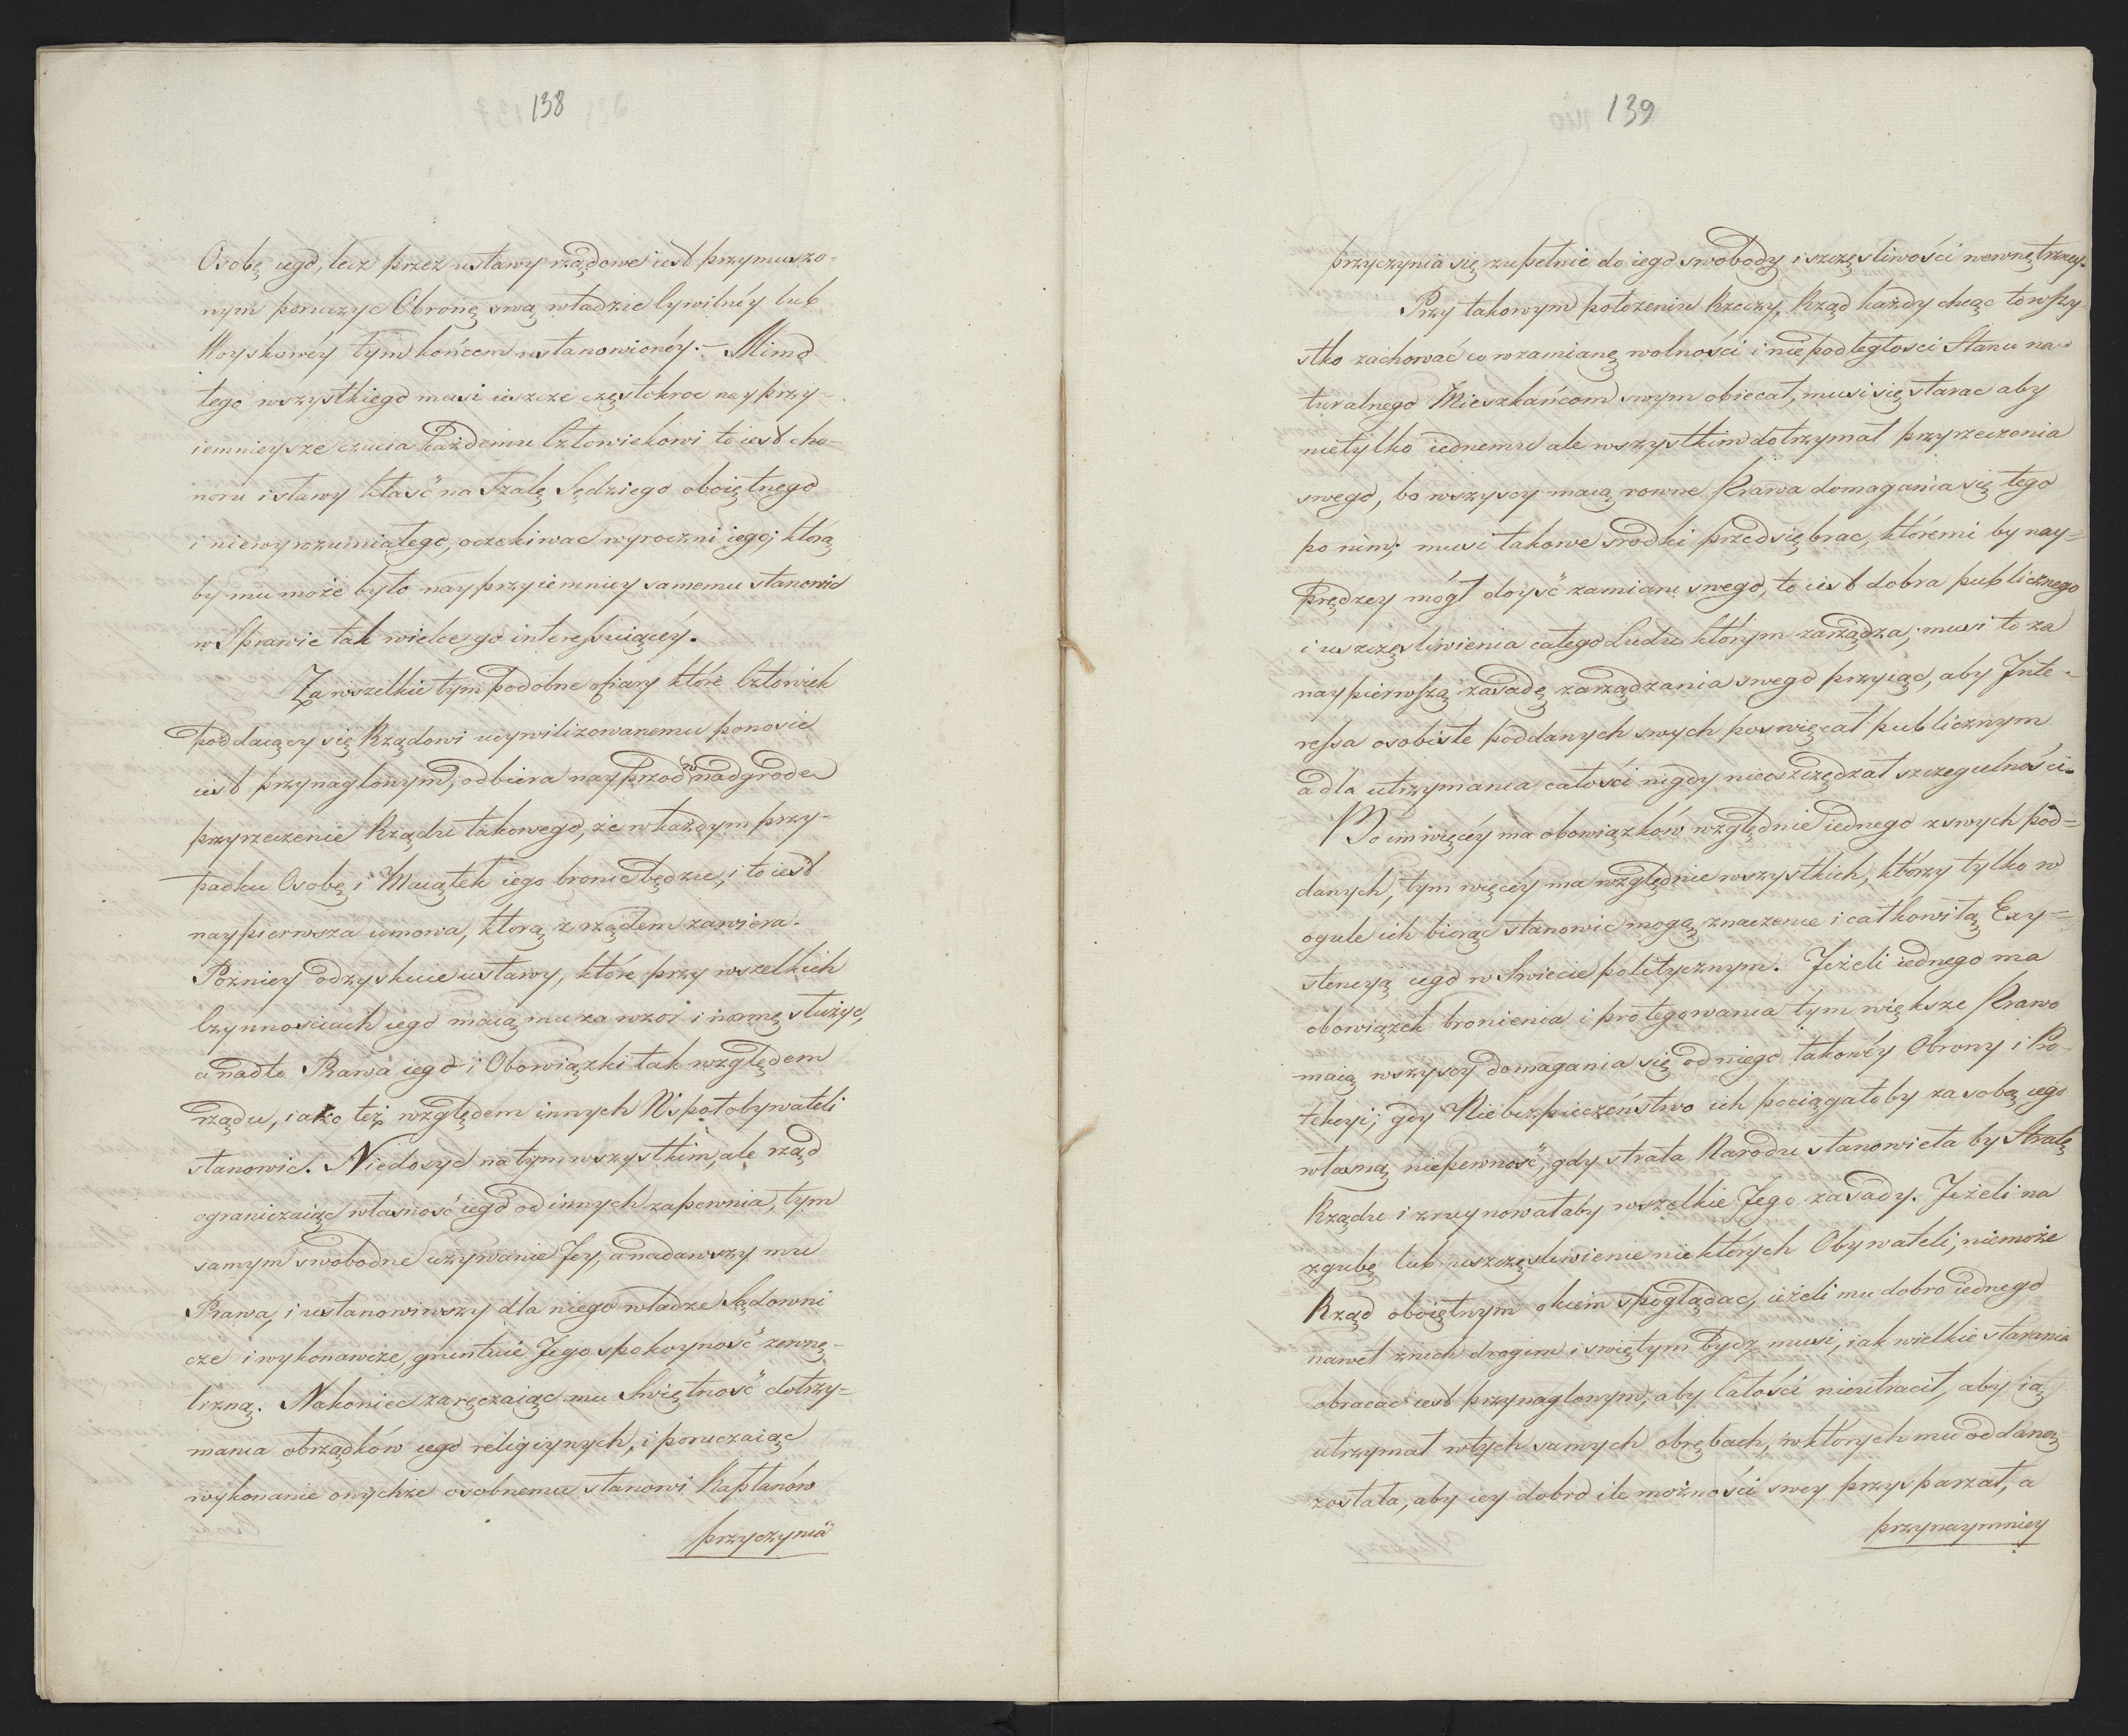 138
Osobę iego, lecz przez ustawy rządowe iest przymuszo-
nym poruczyc Obronę swą władzie Cywilnéy lub
Woyskowéy tym końcem ustanowionéy. – Mimo
tego wszystkiego musi ieszcze częstokroc nayprzy=
iemnieysze czucia każdemu Człowiekowi to iest cho-
noru i sławy kłaść na Szalę Sędziego oboiętnego
i niewyrozumiałego, oczekiwac wyroczni iego; którą
by mu może było nayprzyiemniey samemu stanowic
w Sprawie tak wielce go interessuiącéy.
Za wszelkie tym podobne ofiary które Człowiek
poddaiący się Rządowi ucywilizowanemu ponosic
iest przynaglonym, odbiera nayprzod w nadgrode
przyrzeczenie Rządu takowego, że w każdym przy-
padku Osobę i Maiątek iego bronic będzie, i to iest
naypierwsza umowa, którą z rządem zawiera.
Pozniey odzyskuie ustawy, które przy wszelkich
Czynnosciach iego maią mu za wzór i normę służyc,
a nadto Prawa iego i Obowiązki tak względem
rządu, iako też względem innych Wspołobywateli
stanowic. Niedosyc na tym wszystkim, ale rząd
ograniczaiąc własność iego od innych zapewnia, tym
samym swobodne używanie Jey, a nadawszy mu
Prawa, i ustanowiwszy dla niego władze Sądowni
cze i wykonawcze, gruntuie Jego spokoyność zewnę-
trzną. Nakoniec zaręczaiąc mu Swiętność dotrzy=
mania obrządków iego religiynych, i poruczaiąc
wykonanie onychże osobnemu stanowi Kapłanów
przyczynia
139
przyczynia się zupełnie do iego swobody i szczęsliwości wewnętrzney.
Przy takowym położeniu Rzeczy, Rząd każdy chcąc to wszy-
stko zachować co w zamianę wolności i niepodległosci Stanu na=
turalnego Mieszkańcom swym obiecał, musi się starac aby
nietylko iednemu ale wszystkim dotrzymał przyrzeczenia
swego, bo wszyscy maią rowne Prawa domagania się tego
po nim; musi takowe srodki przedsiębrac, któremi by nay=
prędzey mógł doyść zamiaru swego, to iest dobra publicznego
i uszczęsliwienia całego Ludu którym zarządza; musi to za
naypierwszą zasadę zarządzania swego przyiąc, aby Inte-
ressa osobiste poddanych swych poswięcał publicznym
a dla utrzymania całości nigdy nieoszczędzał szczegulności.
Bo im więcéy ma obowiązków względnie iednego z swych pod=
danych, tym więcéy ma względnie wszystkich, którzy tylko w
ogule ich biorąc stanowic mogą znaczenie i całkowitą Exy=
stencyą iego w Swiecie politycznym. Jeżeli iednego ma
obowiązek bronienia i protegowania tym większe Prawo
maią wszyscy domagania się od niego takowéy Obrony i Pro-
tekcyi; gdy Niebezpieczeństwo ich pociągałoby za sobą iego
własną niepewność, gdy strata Narodu stanowiła by Stratę
Rządu i zruynowałaby wszelkie Jego zasady. Jeżeli na
zgubę lub uszczęsliwienie niektórych Obywateli, niemoże
Rząd oboiętnym okiem spoglądac, ieżeli mu dobro iednego
nawet z nich drogim i swiętym bydz musi, iak wielkie starania
obracac iest przynaglonym, aby Całości nieutracił, aby ią
utrzymał w tych samych obrębach, w których mu oddaną
została, aby iey dobro ile możności swey przysparzał, a
przynaymniey